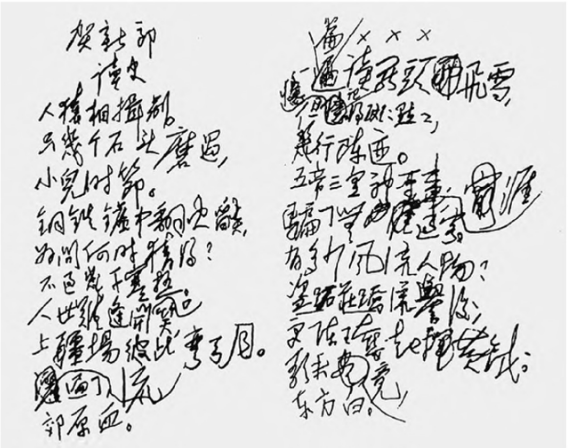 贺新郎
读史
人猿相揖别。
只幾个石头磨过,
小兒时節。
铜铁鑪中翻火焰,
为问何时猜得?
不过幾千寒热。
人世难逢开口笑。
上疆場彼此弯弓月。
流
郊原血。
篇 / × × ×
一 读罢頭 飞雪,
但记得斑斑点点,
幾行陈迹。
五帝三皇神圣事,
骗了无涯过客。
有多少风流人物?
盗跖庄蹻流譽后,
更陈王奮起挥黄钺。
歌未竟,
东方白。